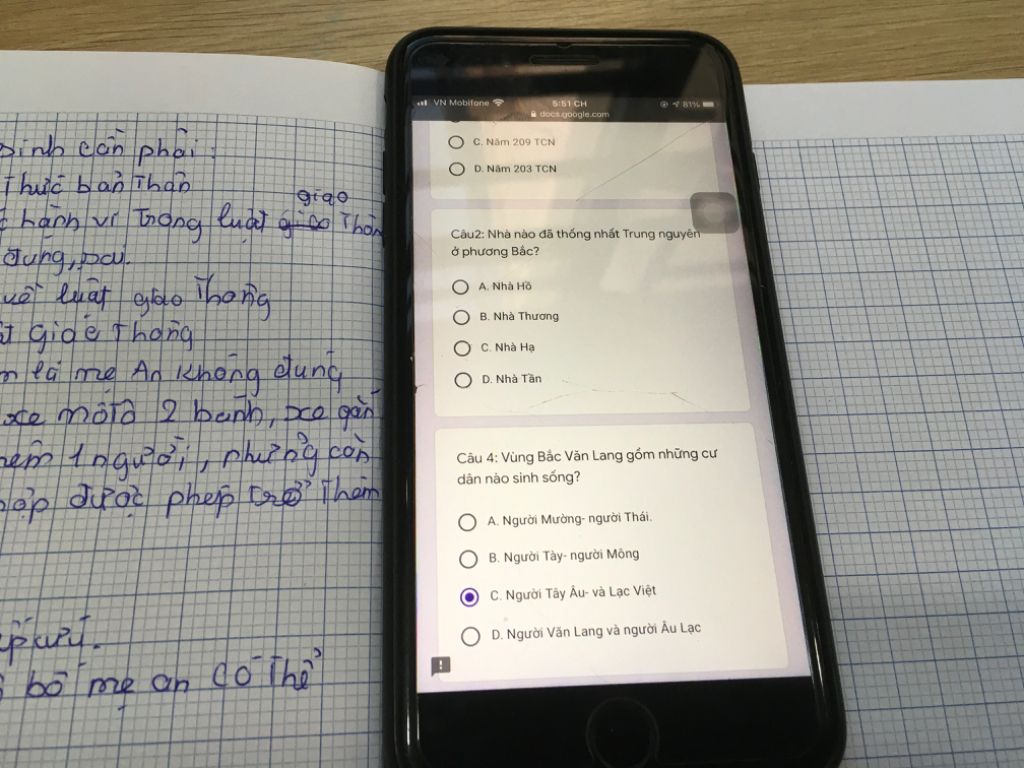 cần phải:
Thức bản Thân
hành vi Trong luật giao Thôn
đúng, sai.
luật giao Thông
giao Thông
là mẹ An không đúng
xe môtô 2 bánh, xe gắn
1 người, nhưng còn
được phép Trở Thêm
bố mẹ an có Thể
VN Mobifone 5:51 CH 81%
docs.google.com
C. Năm 209 TCN
D. Năm 203 TCN
Câu2: Nhà nào đã thống nhất Trung nguyên
ở phương Bắc?
A. Nhà Hồ
B. Nhà Thương
C. Nhà Hạ
D. Nhà Tần
Câu 4: Vùng Bắc Văn Lang gồm những cư
dân nào sinh sống?
A. Người Mường- người Thái.
B. Người Tày- người Mông
C. Người Tây Âu- và Lạc Việt
D. Người Văn Lang và người Âu Lạc